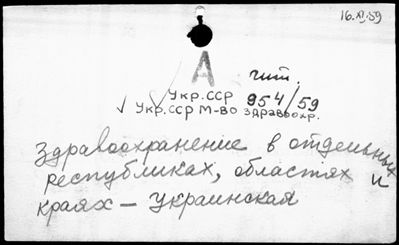 16.XI.59
А чит.
Укр.ССР 954/59
Укр.ССР М-ВО здравоохр.
Здравоохранение в отдельных
республиках, областях и
краях – Украинская